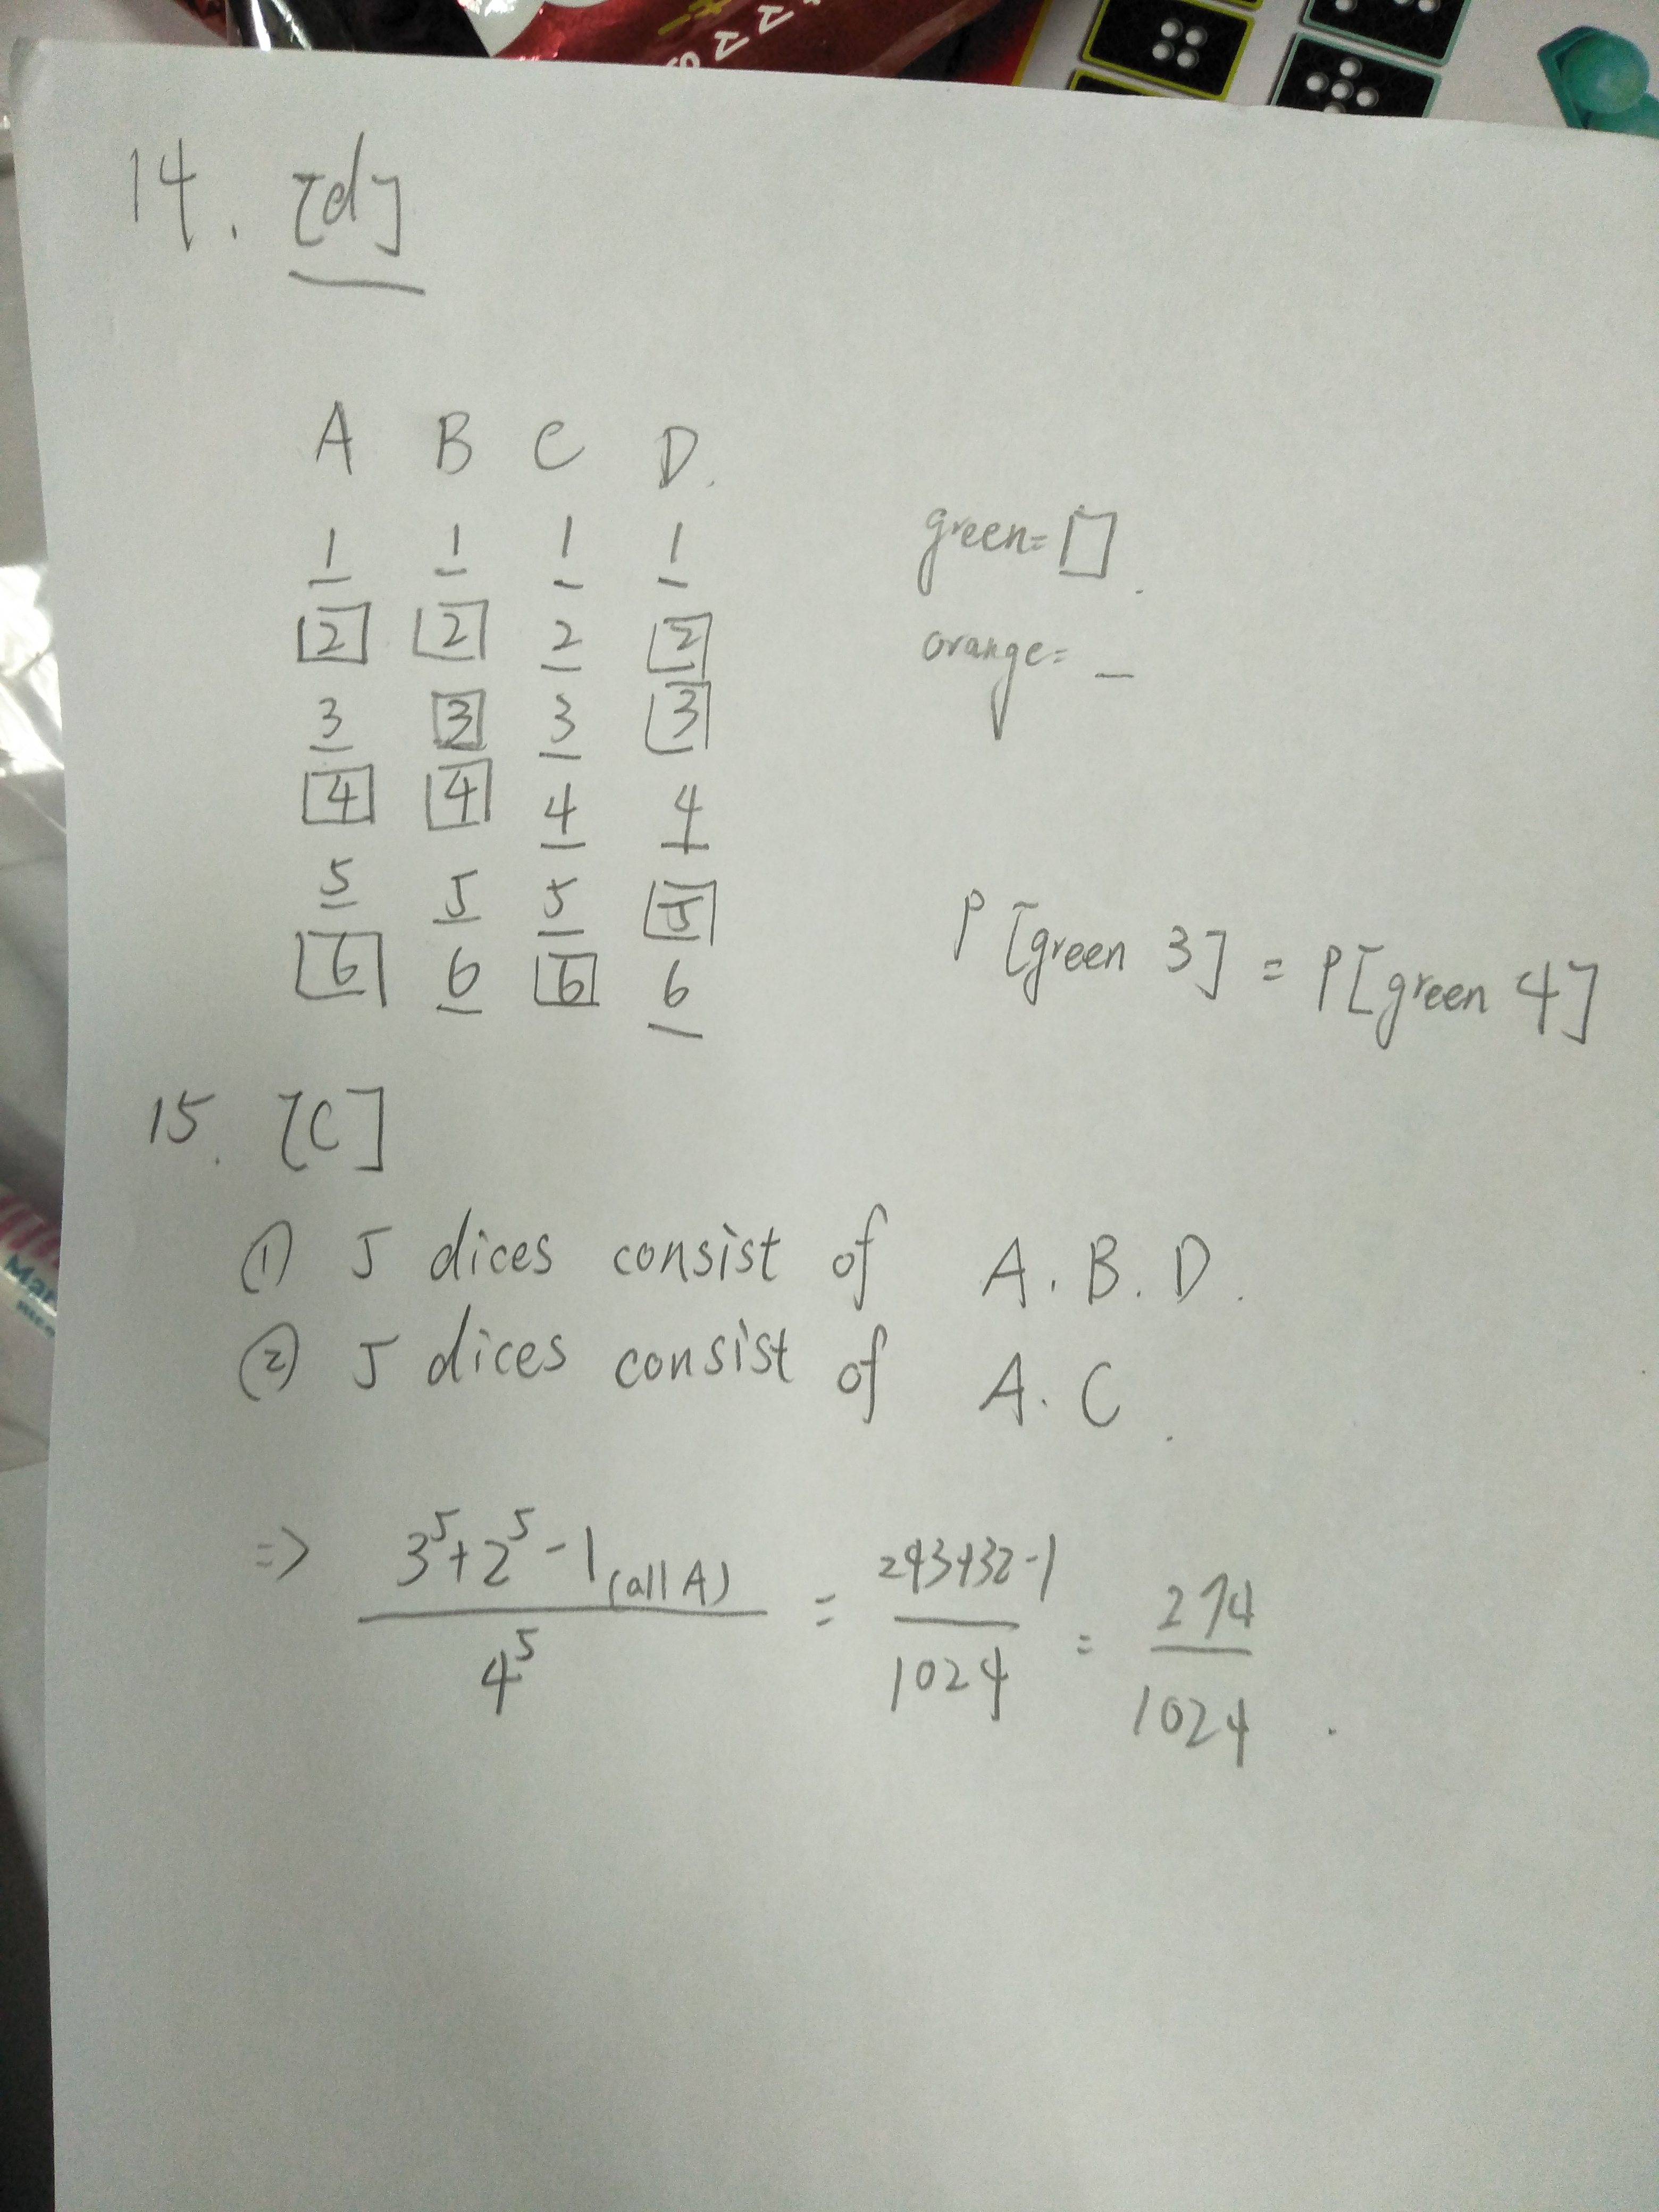 14. [d]
A B C D.
1 1 1 1
2 2 2 2
3 3 3 3
4 4 4 4
5 5 5 5
6 6 6 6
green= □.
orange= _
P[green 3] = P[green 4]
15. [C]
① 5 dices consist of A. B. D.
② 5 dices consist of A. C.
=> 3^5+2^5-1(all A) / 4^5 = 243+32-1 / 1024 = 274 / 1024.